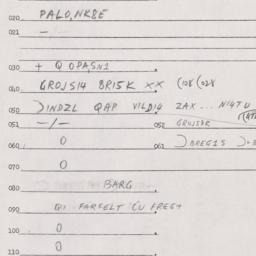 020 PALO,NKBE
021 —
030 + Q OPA,SN1
040 GROJSI4 8RI5K XX (10X (02X
050 )INDZL QAP VILDI4 ZAX... NI4TU
051 —/— 052 GROJSER
060 0 061 )BREGIS
070 0
080 BARG
090 QI FARFELT CU FREG4
100 0
110 0